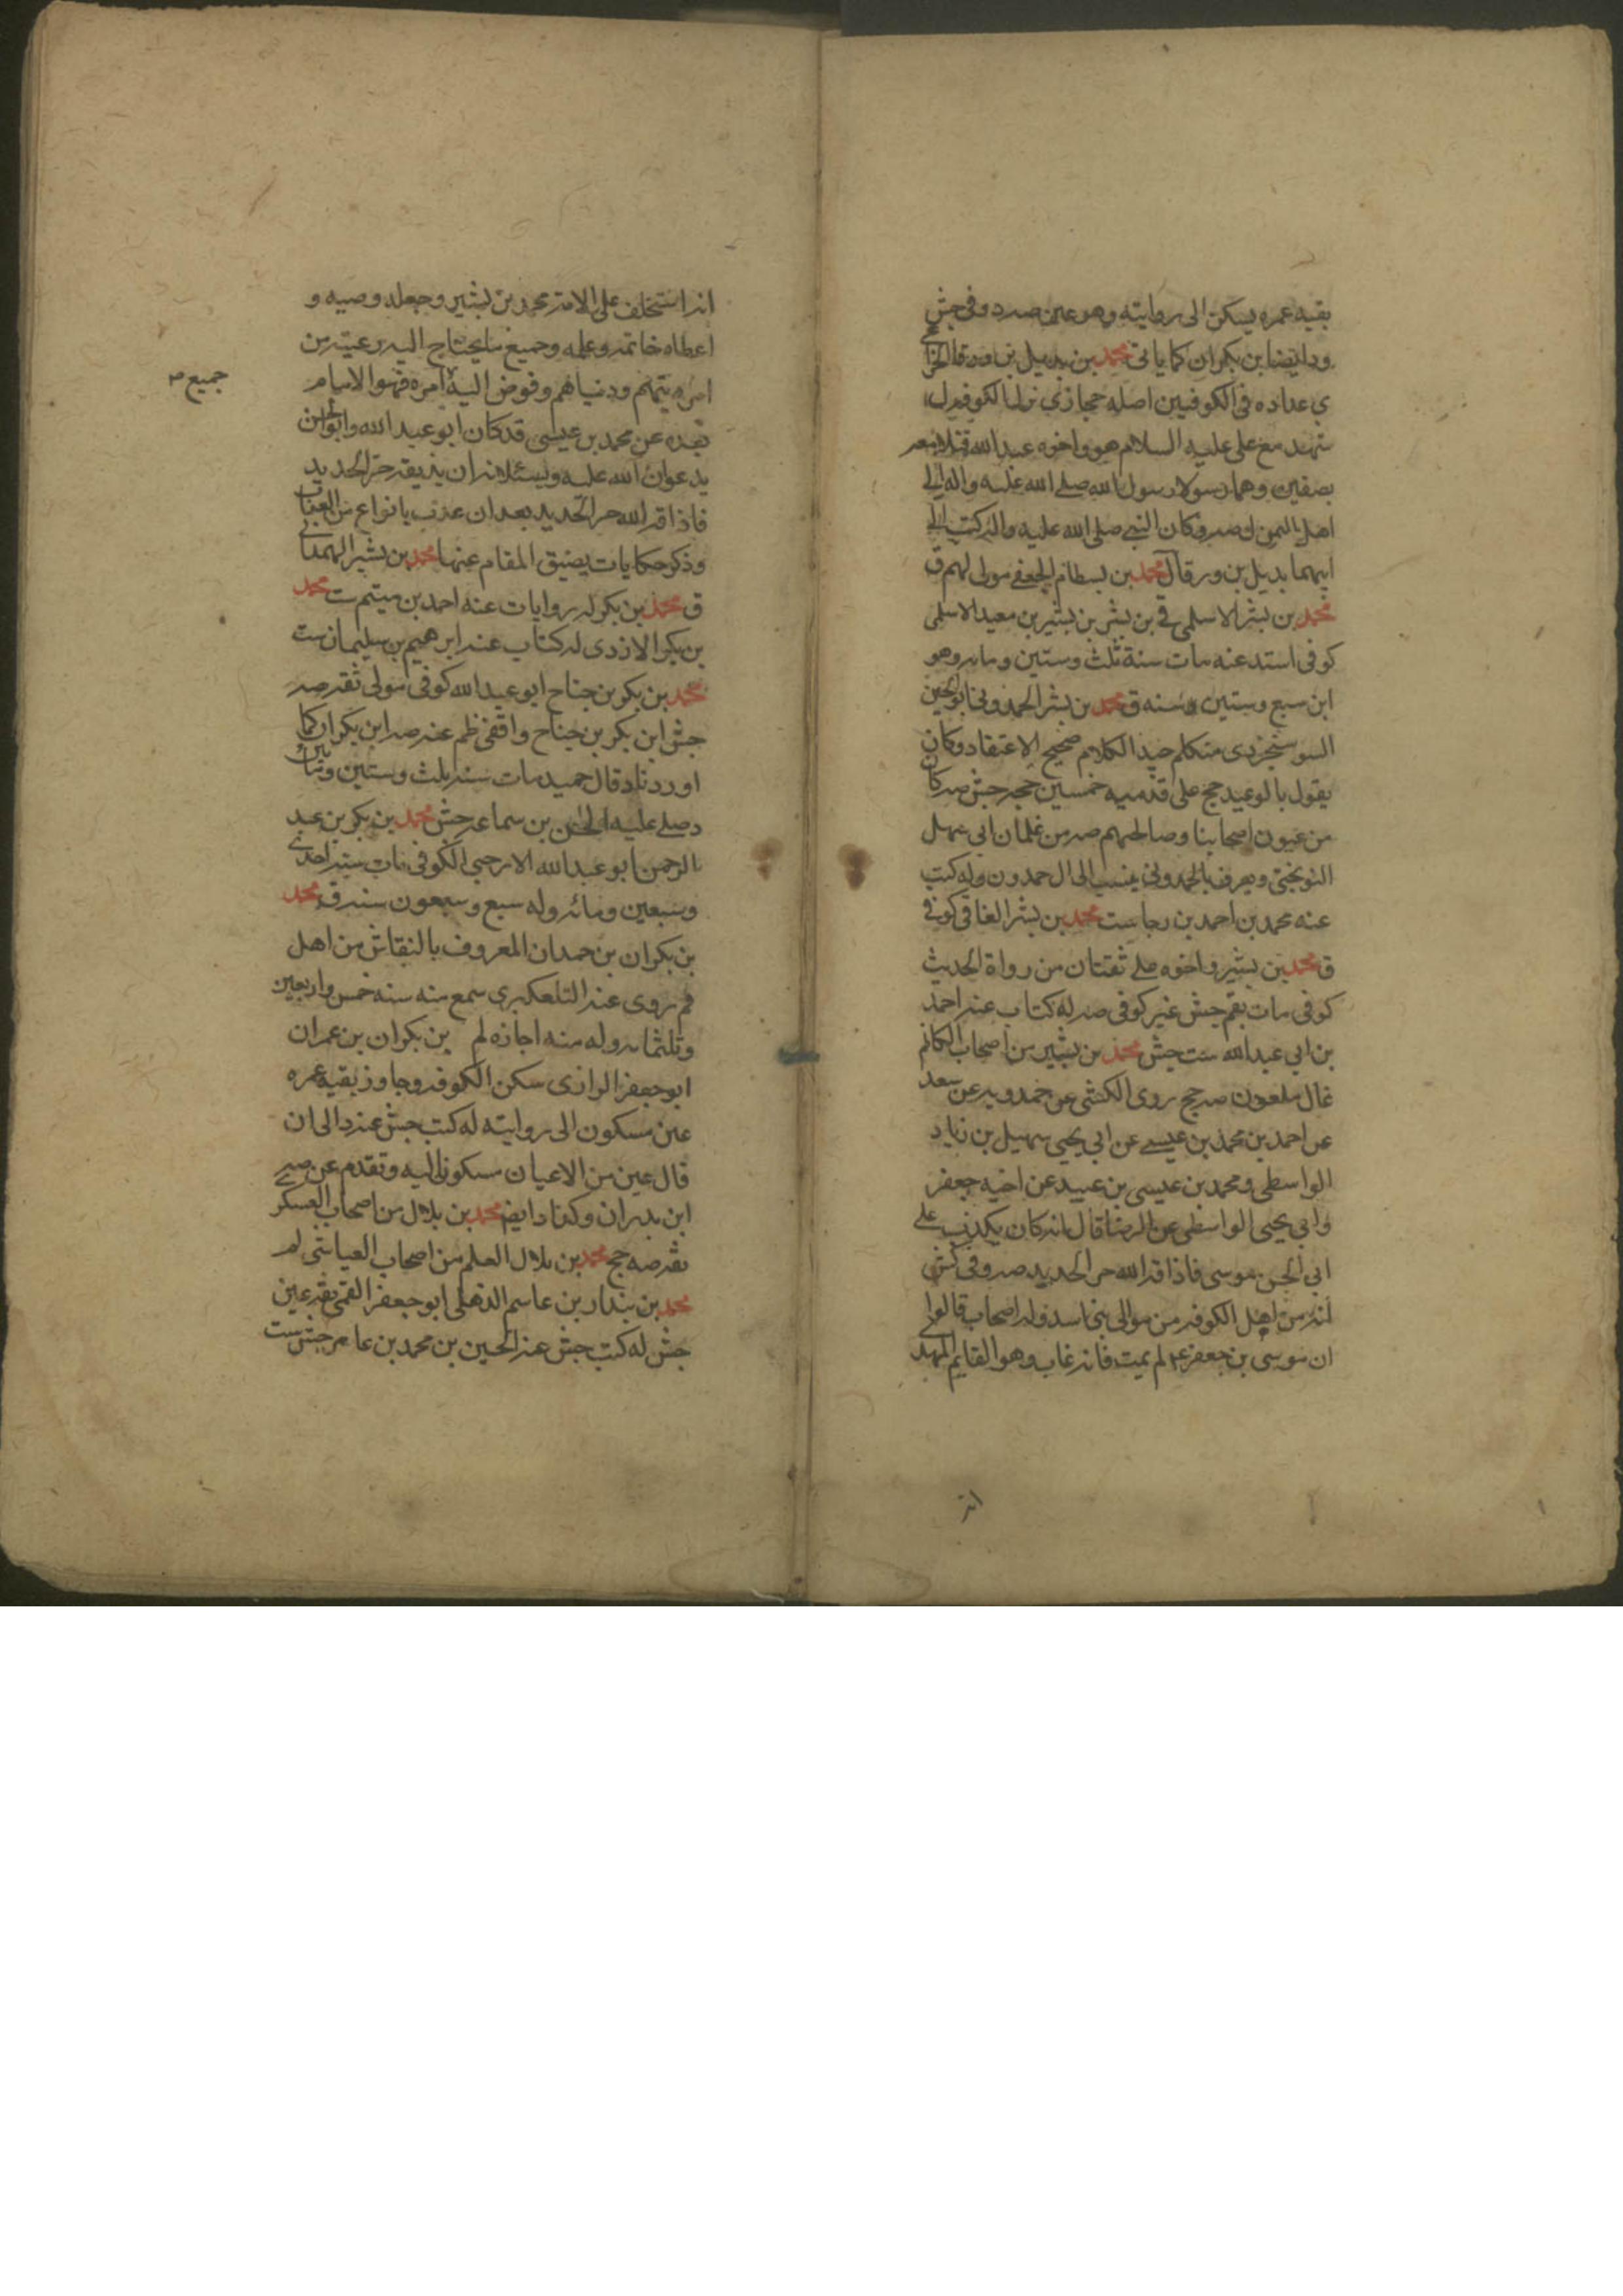 بقيه عمره يسكن الى روايته وهو عين صه رد وفى جش
ود ايضا بن بكران كما ياتى محمد بن بديل بن ورقا الخزا
عى عداده فى الكوفيين اصله حجازى نزل الكوفه ل
شهد مع على عليه السلام هو واخوه عبد الله قتلا معه
بصفين وهما رسولا رسول الله صلى الله عليه واله الى
اهل اليمن ى صه وكان النبى صلى الله عليه واله كتب الى
ابيهما بديل بن ورقا محمد بن بسطام الجعفى مولى لهم ق
محمد بن بشر الاسلمى ق بن بشر بن بشير بن معبد الاسلمى
كوفى اسند عنه مات سنة ثلث وستين ومايه وهو
ابن سبع وستين سنه ق محمد بن بشر الحمدونى ابو الحسين
السوسنجردى متكلم جيد الكلام صحيح الاعتقاد وكان
يقول بالوعيد حج على قدميه خمسين حجه جش صه كان
من عيون اصحابنا وصالحيهم صه من غلمان ابى سهل
النوبختى ويعرف بالحمدونى ينسب الى ال حمدون وله كتب
عنه محمد بن احمد بن رجا ست محمد بن بشر العناقى كوفى
ق محمد بن بشير واخوه على ثقتان من رواة الحديث
كوفى مات بقم جش غير كوفى صه له كتاب عنه احمد
بن ابى عبد الله ست جش محمد بن بشير من اصحاب الكاظم
غال ملعون صه جخ روى الكشى عن حمدويه عن سعد
عن احمد بن محمد بن عيسى عن ابى يحيى سهيل بن زياد
الواسطى ومحمد بن عيسى بن عبيد عن اخيه جعفر
وابى يحيى الواسطى عن الرضا قال انه كان يكذب على
ابى الحسن موسى فاذاقه الله حر الحديد صه وفى كش
انه من اهل الكوفه من موالى بنى اسد وله اصحاب قالوا
ان موسى بن جعفر ع لم يمت فانه غاب وهو القايم المهدى
انه
انه استخلف على الامه محمد بن بشير وجعله وصيه و
اعطاه خاتمه وعلمه وجميع ما يحتاج اليه رعيته من
امر دينهم ودنياهم وفوض اليه امره فهو الامام
جميع
بعده عن محمد بن عيسى قد كان ابو عبد الله وابو الحسن
يدعوان الله عليه ويسئلانه ان يذيقه حر الحديد
فاذاقه الله حر الحديد بعد ان عذب بانواع من العذاب
وذكر حكايات يضيق المقام عنها محمد بن بشير الهمدانى
ق محمد بن بكر له روايات عنه احمد بن ميثم ست محمد
بن بكر الازدى له كتاب عنه ابرهيم بن سليمان ست
محمد بن بكر بن جناح ابو عبد الله كوفى مولى ثقه صه
جش ابن بكر بن جناح واقفى ظم عنه صه ابن بكران كما
اوردناه قال حميد مات سنه ثلث وستين ومأتين
وصلى عليه الحسن بن سماعه جش محمد بن بكر بن عبد
الرحمن ابو عبد الله الارحبى الكوفى مات سنه احدى
وسبعين ومائه وله سبع وسبعون سنه ق محمد
بن بكران بن حمدان المعروف بالنقاش من اهل
قم روى عنه التلعكبرى سمع منه سنه خمس واربعين
وثلثمايه وله منه اجازه لم بن بكران بن عمران
ابو جعفر الرازى سكن الكوفه وجاور بقيه عمره
عين مسكون الى روايته له كتب جش عنه د الى ان
قال عين من الاعيان مسكون اليه وتقدم عن صه
ابن بدران وكذا د ايضا محمد بن بلال من اصحاب العسكرى
ثقه صه جخ محمد بن بلال المعلم من اصحاب العياشى لم
محمد بن بندار بن عاصم الذهلى ابو جعفر القمى ثقه عين
جش له كتب جش عنه الحسين بن محمد بن عامر جش ست